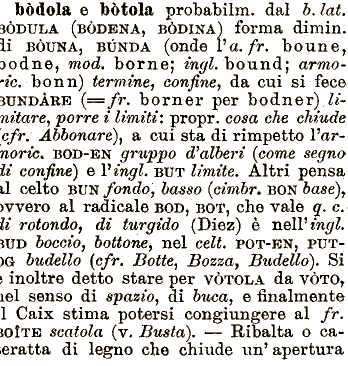 bòdola e bòtola probabilm. dal b. lat.
BÒDULA (BÒDENA, BÒDINA) forma dimin.
di BÒUNA, BÚNDA (onde l'a. fr. boune,
bodne, mod. borne; ingl. bound; armo-
ric. bonn) termine, confine, da cui si fece
BUNDÀRE (=fr. borner per bodner) li-
mitare, porre i limiti: propr. cosa che chiude
(cfr. Abbonare), a cui sta di rimpetto l'ar-
moric. BOD-EN gruppo d'alberi (come segno
di confine) e l'ingl. BUT limite. Altri pensa
al celto BUN fondo, basso (cimbr. BON base),
ovvero al radicale BOD, BOT, che vale q. c.
di rotondo, di turgido (Diez) è nell'ingl.
BUD boccio, bottone, nel celt. POT-EN, PUT-
OG budello (cfr. Botte, Bozza, Budello). Si
è inoltre detto stare per VÒTOLA da VÒTO,
nel senso di spazio, di buca, e finalmente
il Caix stima potersi congiungere al fr.
BOÎTE scatola (v. Busta). — Ribalta o ca-
teratta di legno che chiude un' apertura